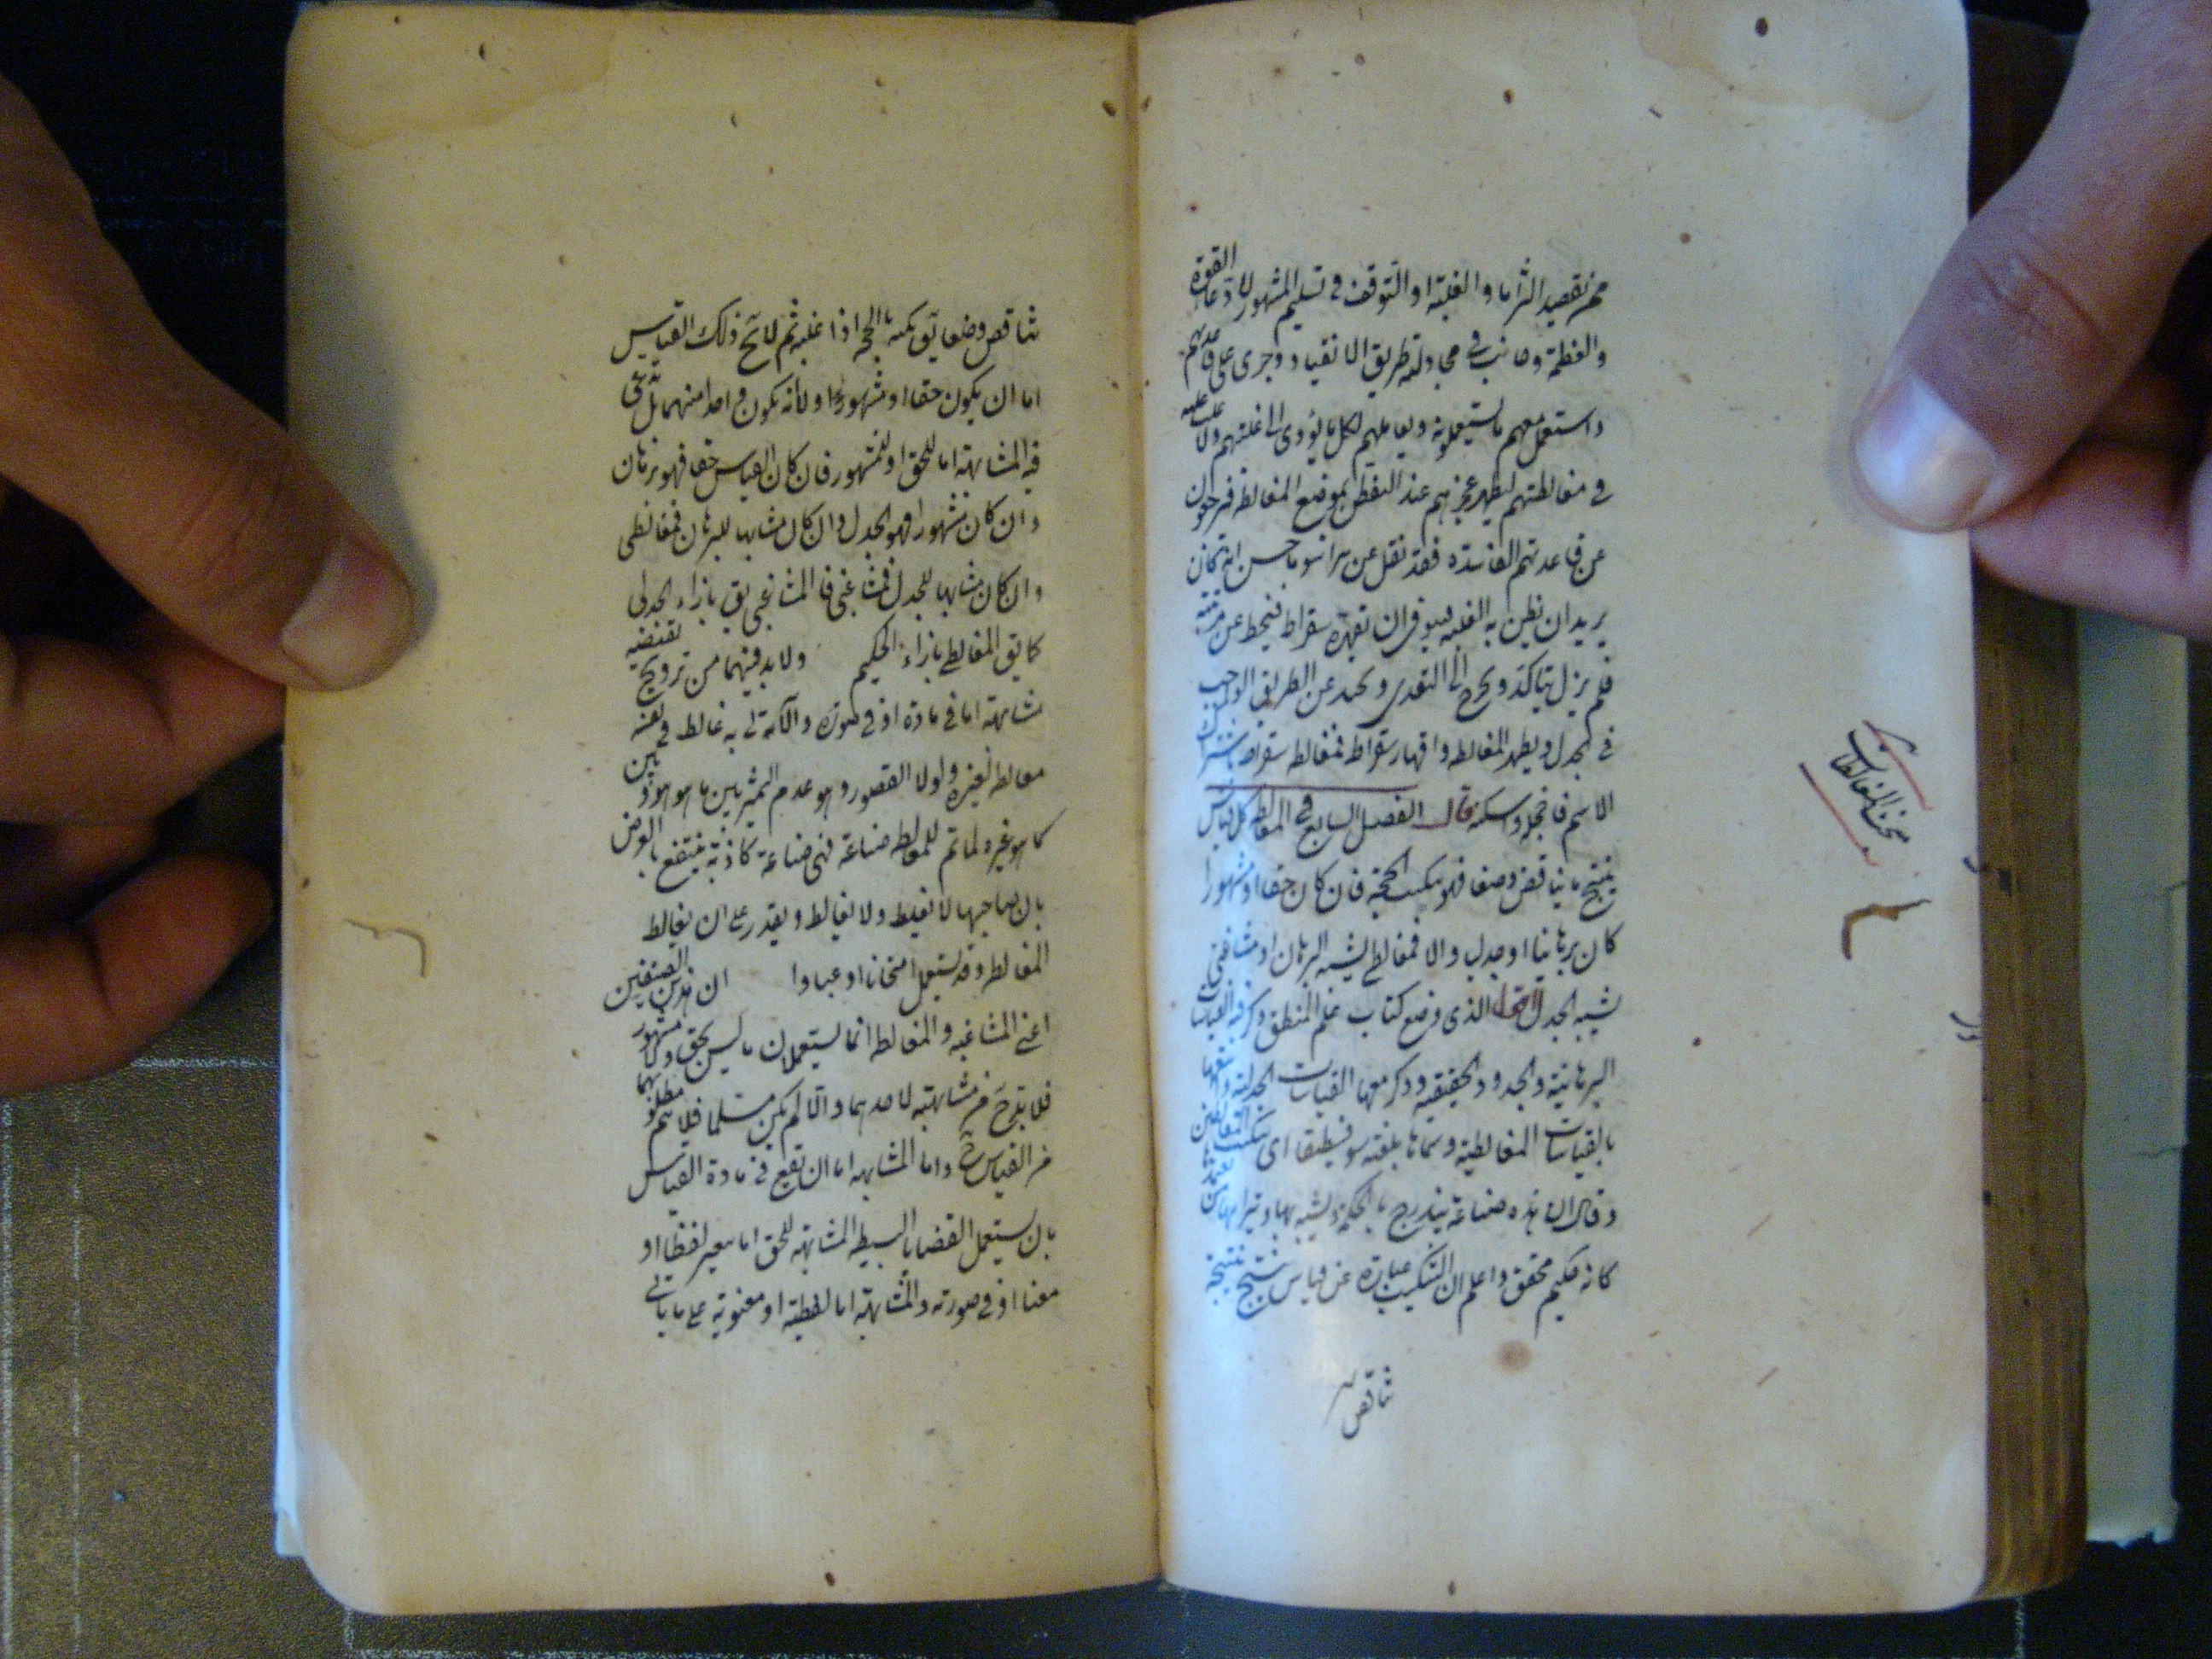 من تقصيد الشر اما والغلبة او التوقف في تسليم المشهور لادعاء القوة
والفطنة وصانب في مجادلته طريق الانقياد وجرى على قاعدتهم
واستعمل معهم ما يستعملونه ويعاملهم بكل ما يؤدى الى غلبتهم ولا عليه
في مغالطتهم ليظهر عجزهم عند التفطن بموضع المغالطة فيرجعون
عن قاعدتهم الفاسدة فقد نقل عن ثراسوماخس انه كان
يريد ان يظن به الغلبة فيوقر ان يقهره سقراط فينحط عن مرتبته
فلم يزل يتأكد ويخرج الى التعدى ويحيد عن الطريق الواجب
في الجدل ويظهر المغالطة واقهار سقراط فغالطه سقراط باشتراك
الاسم فاخجله واسكته قال الفصل السابع في المغالطة كل قياس
ينتج ما يناقض وضعا فهو تبكيت الحجة فان كان حقا او مشهورا
كان برهانيا او جدليا والا فمغالطي يشبه البرهان او مشاغبي
يشبه الجدل اقول الذى وضع كتاب علم المنطق وذكر فيه القياسات
البرهانية والحدود الحقيقية وذكر معها القياسات الجدلية واتبعها
بالقياسات المغالطية وسماها بلغته سوفسطيقا اى تبكيت المغالطين
وقال ان هذه صناعة يندرج بالحكمة ويشبه بها ويتراى بها من يعتمدها
كانه حكيم محقق واعلم ان التبكيت عبارة عن قياس ينتج نتيجة
تناقض
مبحث المغالطات
تناقض وضعا يق بكته بالحجة اذا غلبه ثم لا يخ ذلك القياس
اما ان يكون حقا او مشهورا او لا يكون واحدا منهما بل يدعى
فيه المشابهة اما للحق او للمشهور فان كان القياس حقا فهو برهان
وان كان مشهورا فهو الجدل وان كان مشابها للبرهان فمغالطي
وان كان مشابها للجدل فمشاغبي فالمشاغبي يق بازاء الجدلى
كما يق المغالطى بازاء الحكيم ولابد فيهما من ترويج يقتضيه
مشابهة اما في مادة او في صورة والآتى به غالط في نفسه
مغالط لغيره ولولا القصور وهو عدم التميز بين ما هو هو وبين
ما هو غيره لما تم للمغالطة صناعة فهي صناعة كاذبة ينتفع بالعرض
بان صاحبها لا يغلط ولا يغالط ويقدر على ان يغالط
المغالط وقد يستعمل امتحانا او عنادا ان هذين الصنفين
اعنى المشاغبة والمغالطة انما يستعملان ما ليس بحق ولا مشهور
فلابد من مشابهته لاحدهما والا لم يكن مسلما فلا يتم مطلوبهما
من القياس واما المشابهة اما ان تقع في مادة القياس
بان يستعمل القضايا البسيطة المشابهة للحق اما بتغير لفظا او
معنا او في صورته والمشابهة اما لفظية او معنوية على ما ياتى